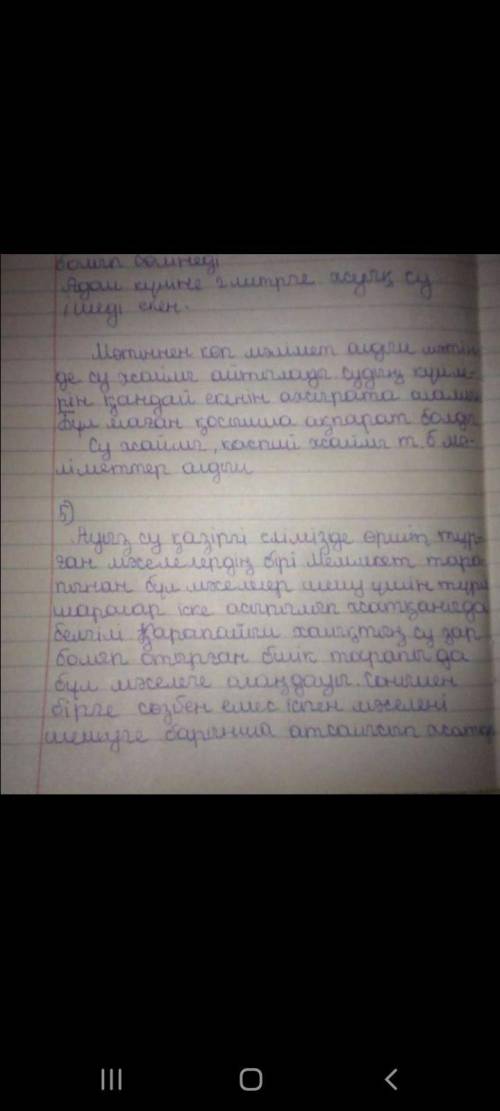 болып бөлінеді
Адам күніне 2 литрге жуық су
ішеді екен.
Мәтіннен көп мәлімет алдым мәтін
де су жайлы айтылады судың күйле-
рін қандай екенін ажырата аламы
Бұл маған қосымша ақпарат болды
Су жайлы, каспий жайлы т.б мә-
ліметтер алдым
5)
Ауыз су қазіргі елімізде өршіп тұр-
ған мәселелердің бірі Мемлекет тара
пынан бұл мәселелер шешу үшін түрлі
шаралар іске асырылып жатқаныда
белгілі Қарапайым халықтың су зар
болып отырған билік тарапы да
бұл мәселеге алаңдаулы. Сонымен
бірге сөзбен емес іспен мәселені
шешуге барынша атсалысып жатыр